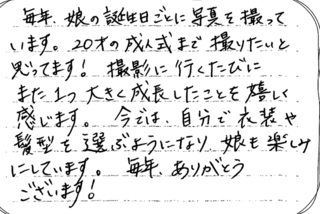 毎年、娘の誕生日ごとに写真を撮って
います。20才の成人式まで撮りたいと
思ってます！ 撮影に行くたびに
また1つ大きく成長したことを嬉しく
感じます。 今では、自分で衣装や
髪型を選ぶようになり、娘も楽しみ
にしています。 毎年、ありがとう
ございます！